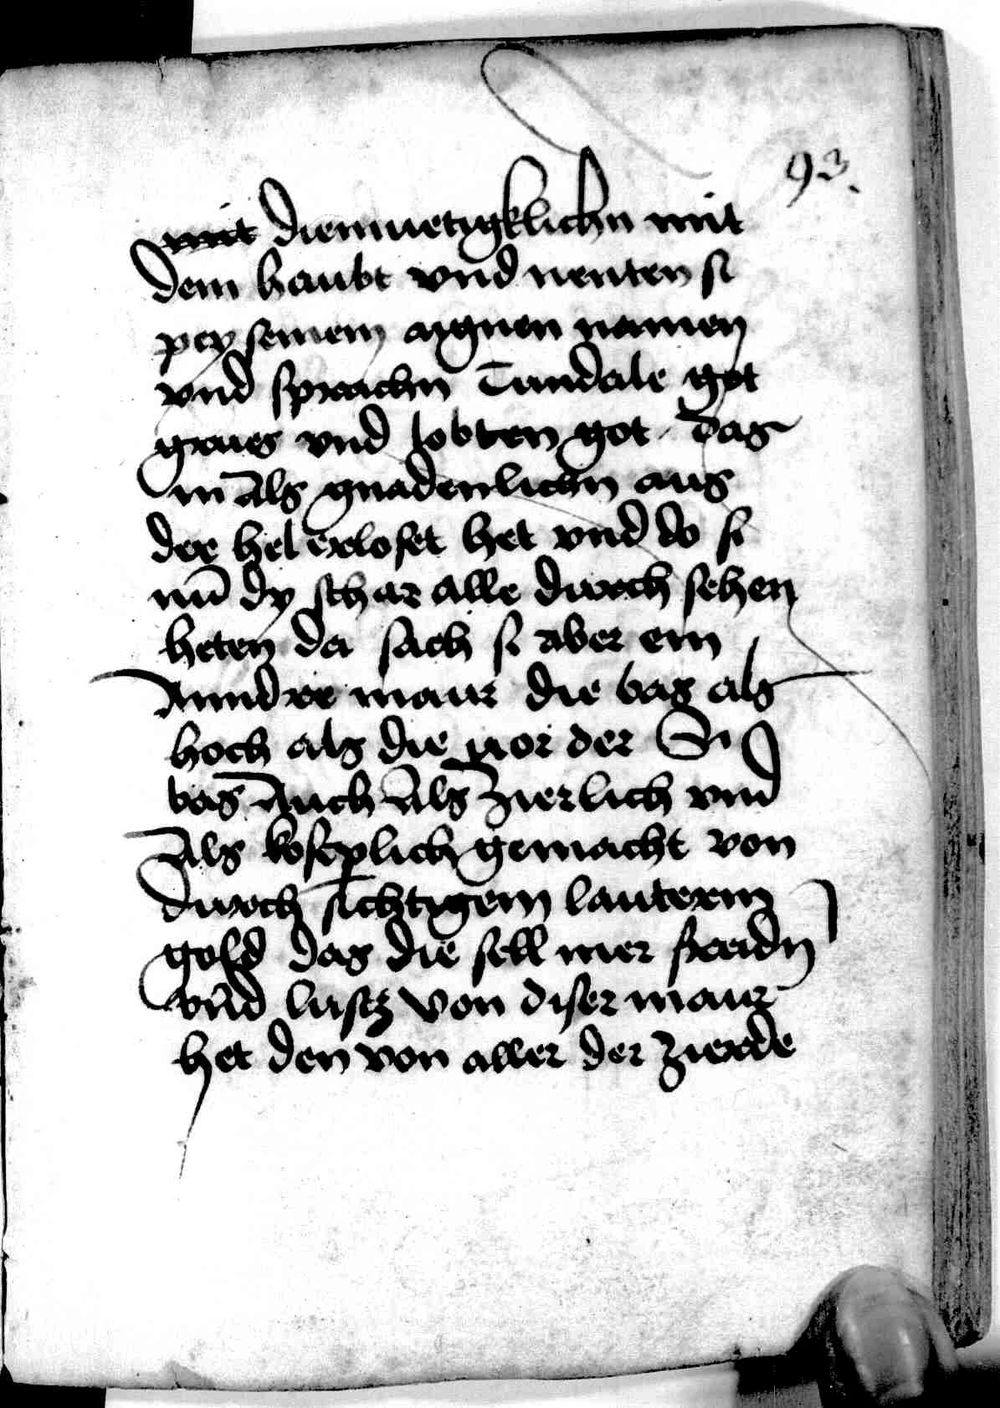 93.
mit diemuetigklichn mit
dem haubt vnd nenten si
pey seinem aignen namen
vnd sprachn Tundale got
grues vnd lobten got das
in Als gnadenlichn aus
der hel erloset het vnd do si
nu̅ dy schar alle durch sehen
heten da sach si aber ein
Anndre maur die bas als
hoch als die uor der Si
bas Auch Als Zierlich vnd
Als kostplich gemacht von
durch sichtigem lauterm
gold das die sell mer freidn
vnd lustz von diser maur
het den von aller der Zierde